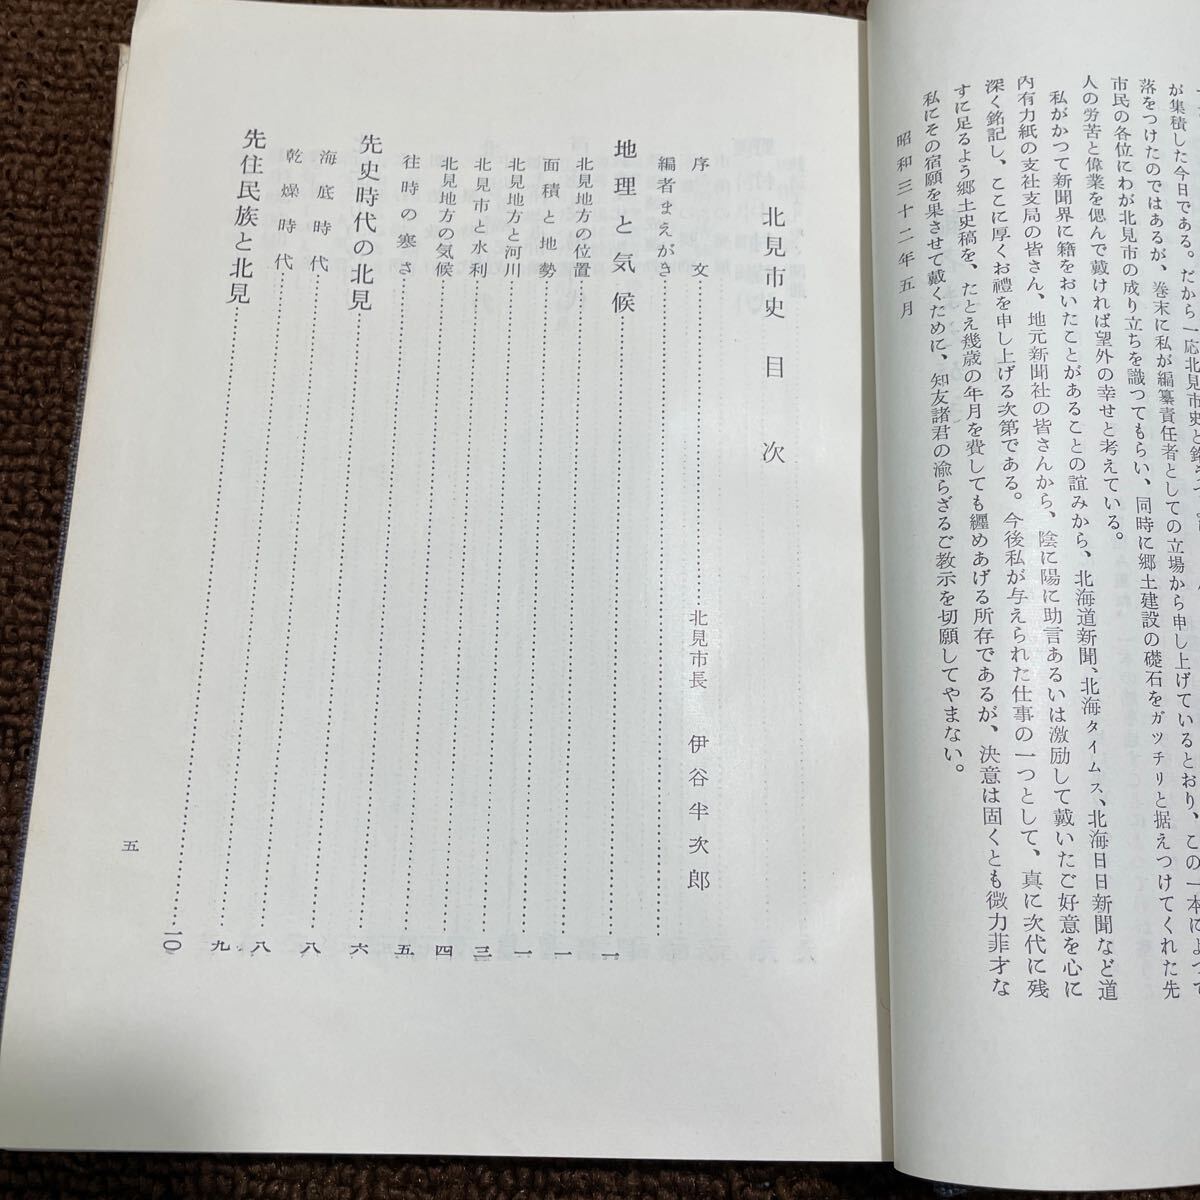 が集積した今日である。だから一応北見市史と
落をつけたのではあるが、巻末に私が編纂責任者としての立場から申し上げているとおり、この一本によつて
市民の各位にわが北見市の成り立ちを識つてもらい、同時に郷土建設の礎石をガツチリと据えつけてくれた先
人の労苦と偉業を偲んで戴ければ望外の幸せと考えている。
私がかつて新聞界に籍をおいたことがあることの誼みから、北海道新聞、北海タイムス、北海日日新聞など道
内有力紙の支社支局の皆さん、地元新聞社の皆さんから、陰に陽に助言あるいは激励して戴いたご好意を心に
深く銘記し、ここに厚くお禮を申し上げる次第である。今後私が与えられた仕事の一つとして、真に次代に残
すに足るよう郷土史稿を、たとえ幾歳の年月を費しても纒めあげる所存であるが、決意は固くとも微力菲才な
私にその宿願を果させて戴くために、知友諸君の渝らざるご教示を切願してやまない。
昭和三十二年五月
北見市史 目次
序文……北見市長 伊谷半次郎
編者まえがき……
地理と気候……一
北見地方の位置……一
面積と地勢……一
北見地方と河川……一
北見市と水利……三
北見地方の気候……四
往時の寒さ……五
先史時代の北見……六
海底時代……八
乾燥時代……八
先住民族と北見……九
……一〇
五